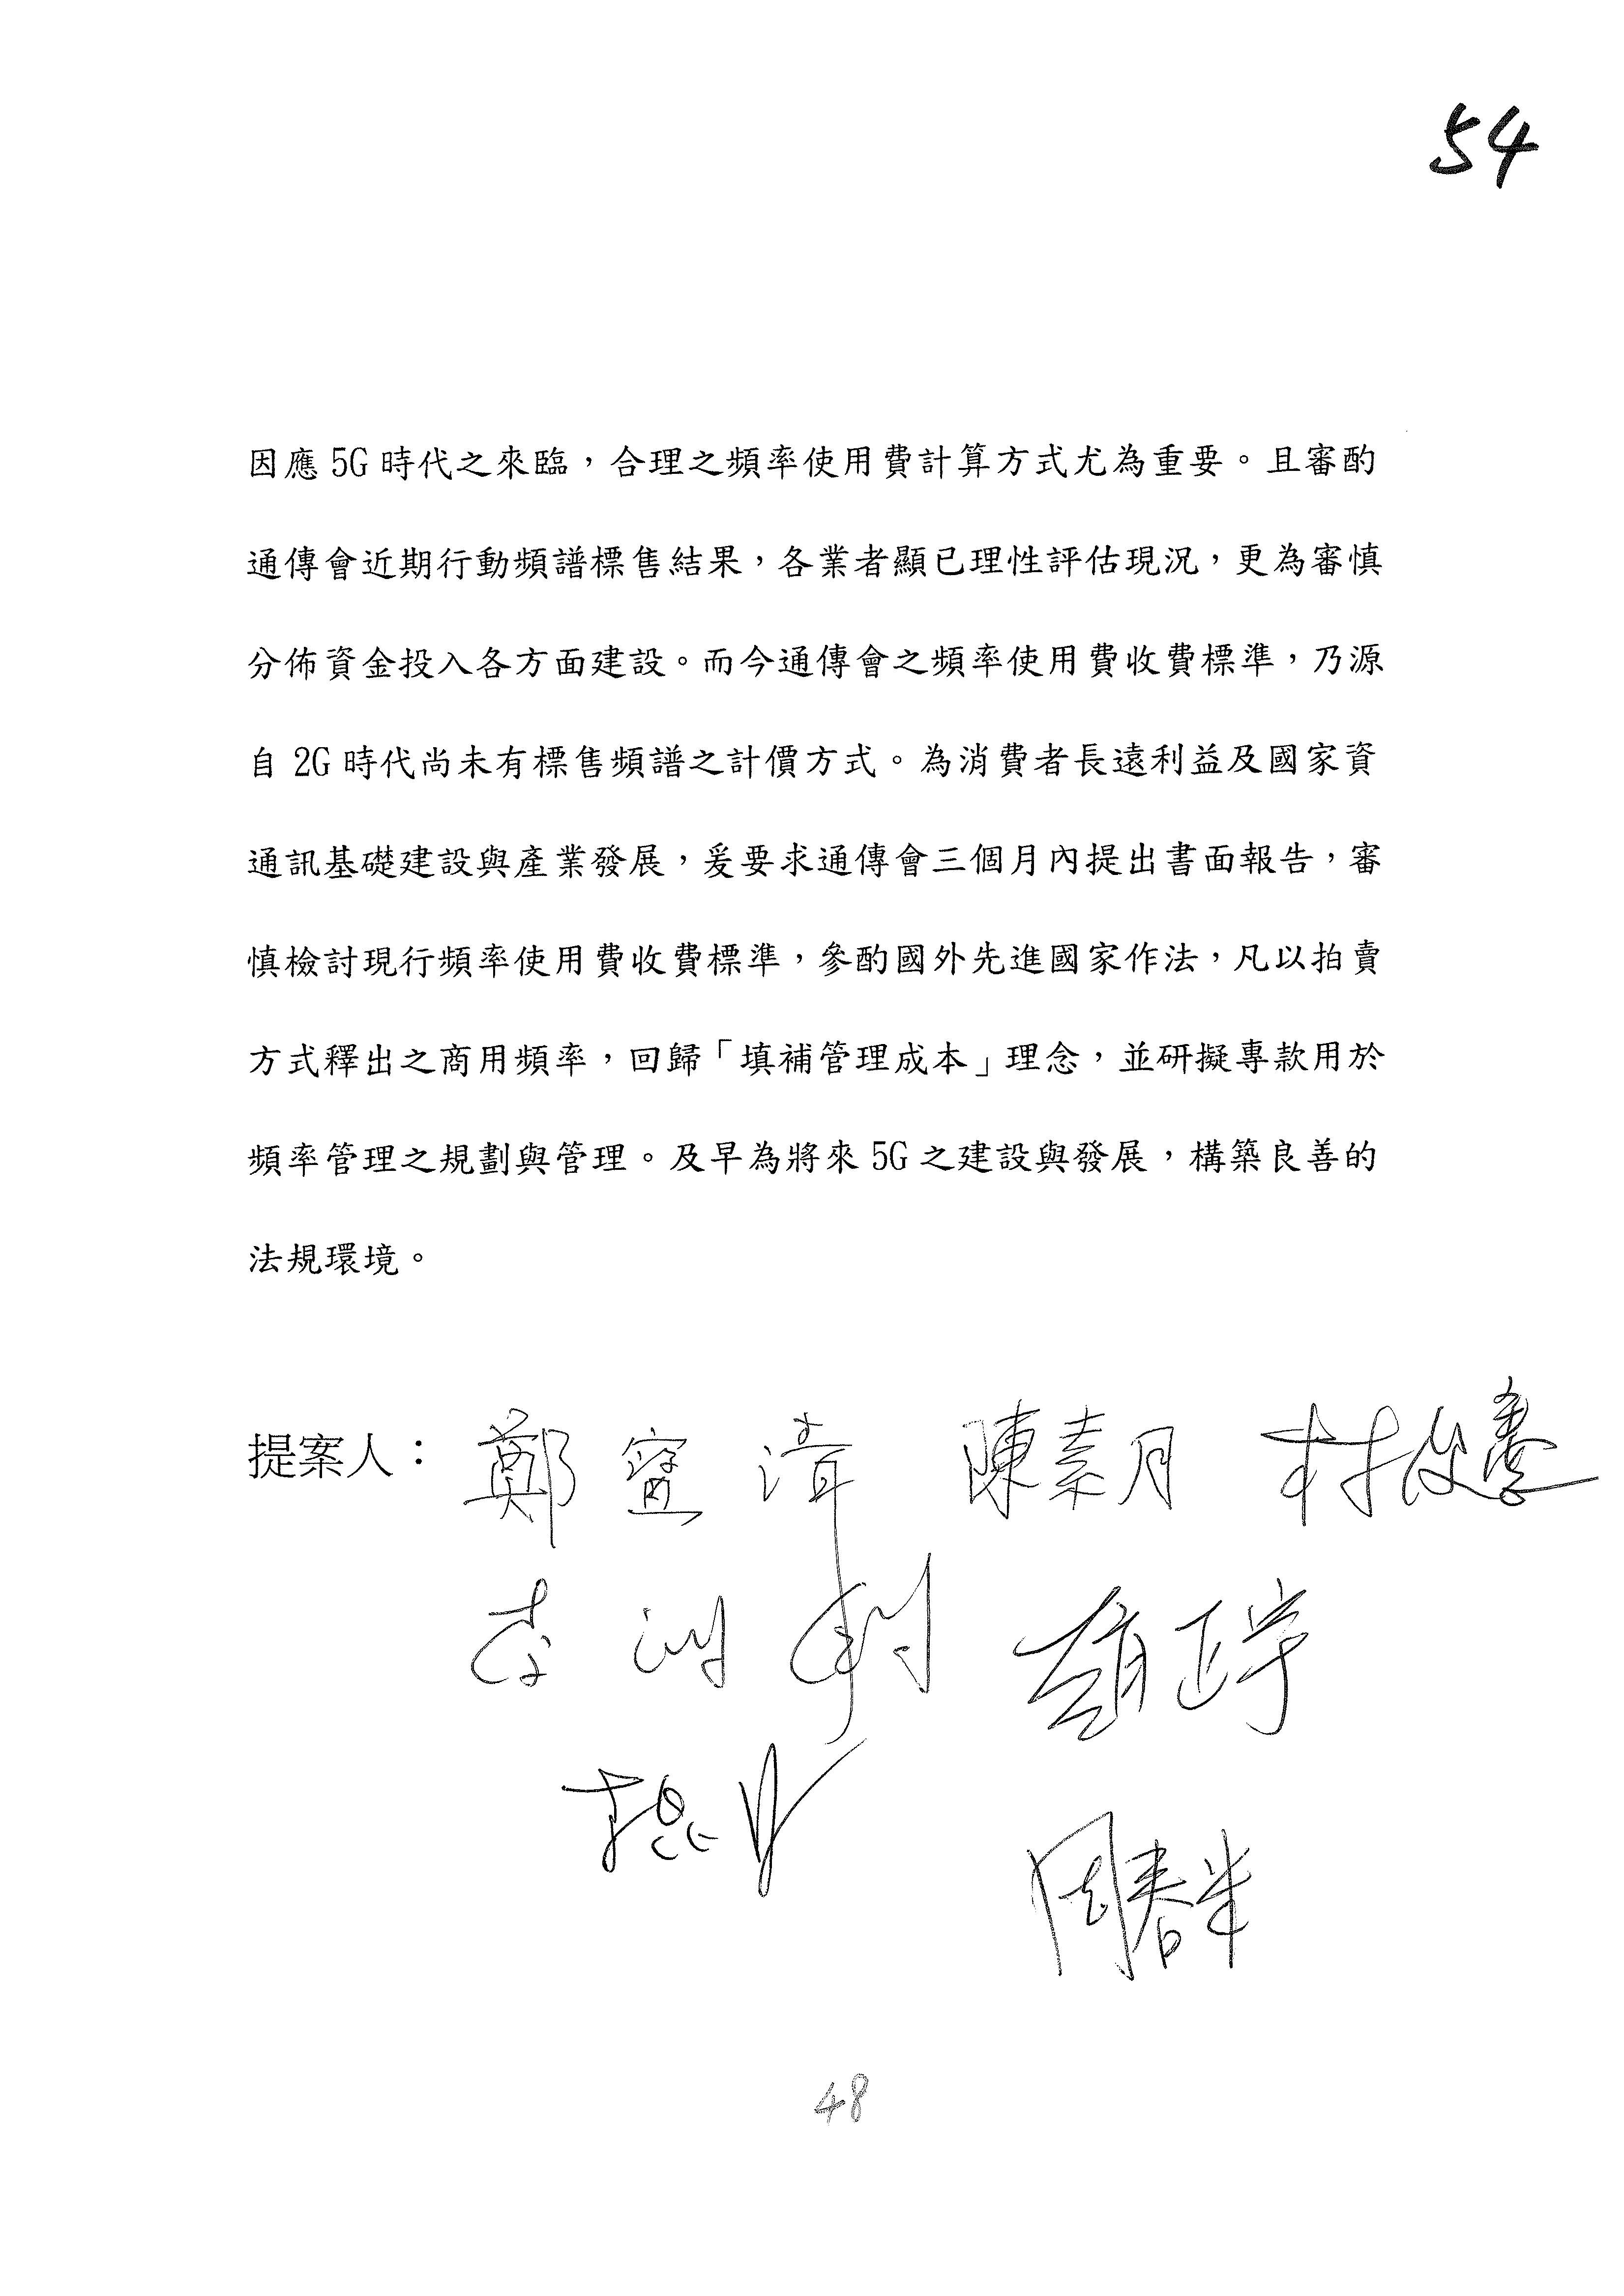 54
因應 5G 時代之來臨，合理之頻率使用費計算方式尤為重要。且審酌
通傳會近期行動頻譜標售結果，各業者顯已理性評估現況，更為審慎
分佈資金投入各方面建設。而今通傳會之頻率使用費收費標準，乃源
自 2G 時代尚未有標售頻譜之計價方式。為消費者長遠利益及國家資
通訊基礎建設與產業發展，爰要求通傳會三個月內提出書面報告，審
慎檢討現行頻率使用費收費標準，參酌國外先進國家作法，凡以拍賣
方式釋出之商用頻率，回歸「填補管理成本」理念，並研擬專款用於
頻率管理之規劃與管理。及早為將來 5G 之建設與發展，構築良善的
法規環境。
提案人： 鄭寶清 陳素月 林俊憲
48